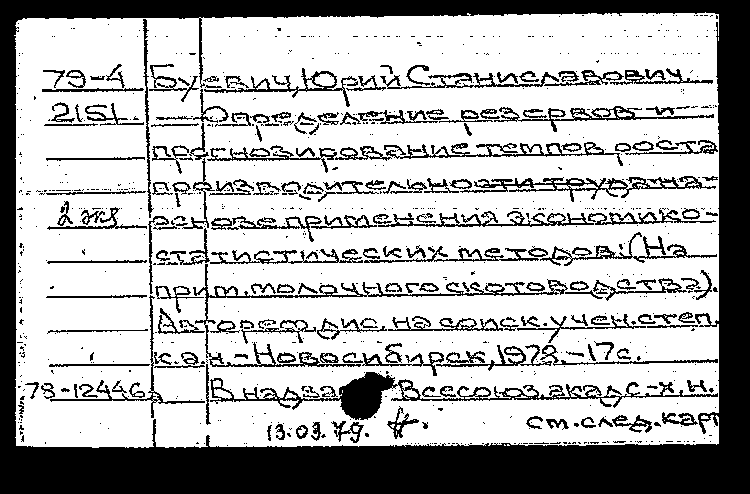 79-4 Буевич, Юрий Станиславович.
2151. — Определение резервов и
прогнозирование темпов роста
производительности труда на
2 экз основе применения экономико-
статистических методов: (На
прим. молочного скотоводства).
Автореф. дис. на соиск. учен. степ.
к.э.н. - Новосибирск, 1978. - 17 с.
78-12446а В надзаг Всесоюз. акад с.-х. н.
13.03.79. см. след. карт